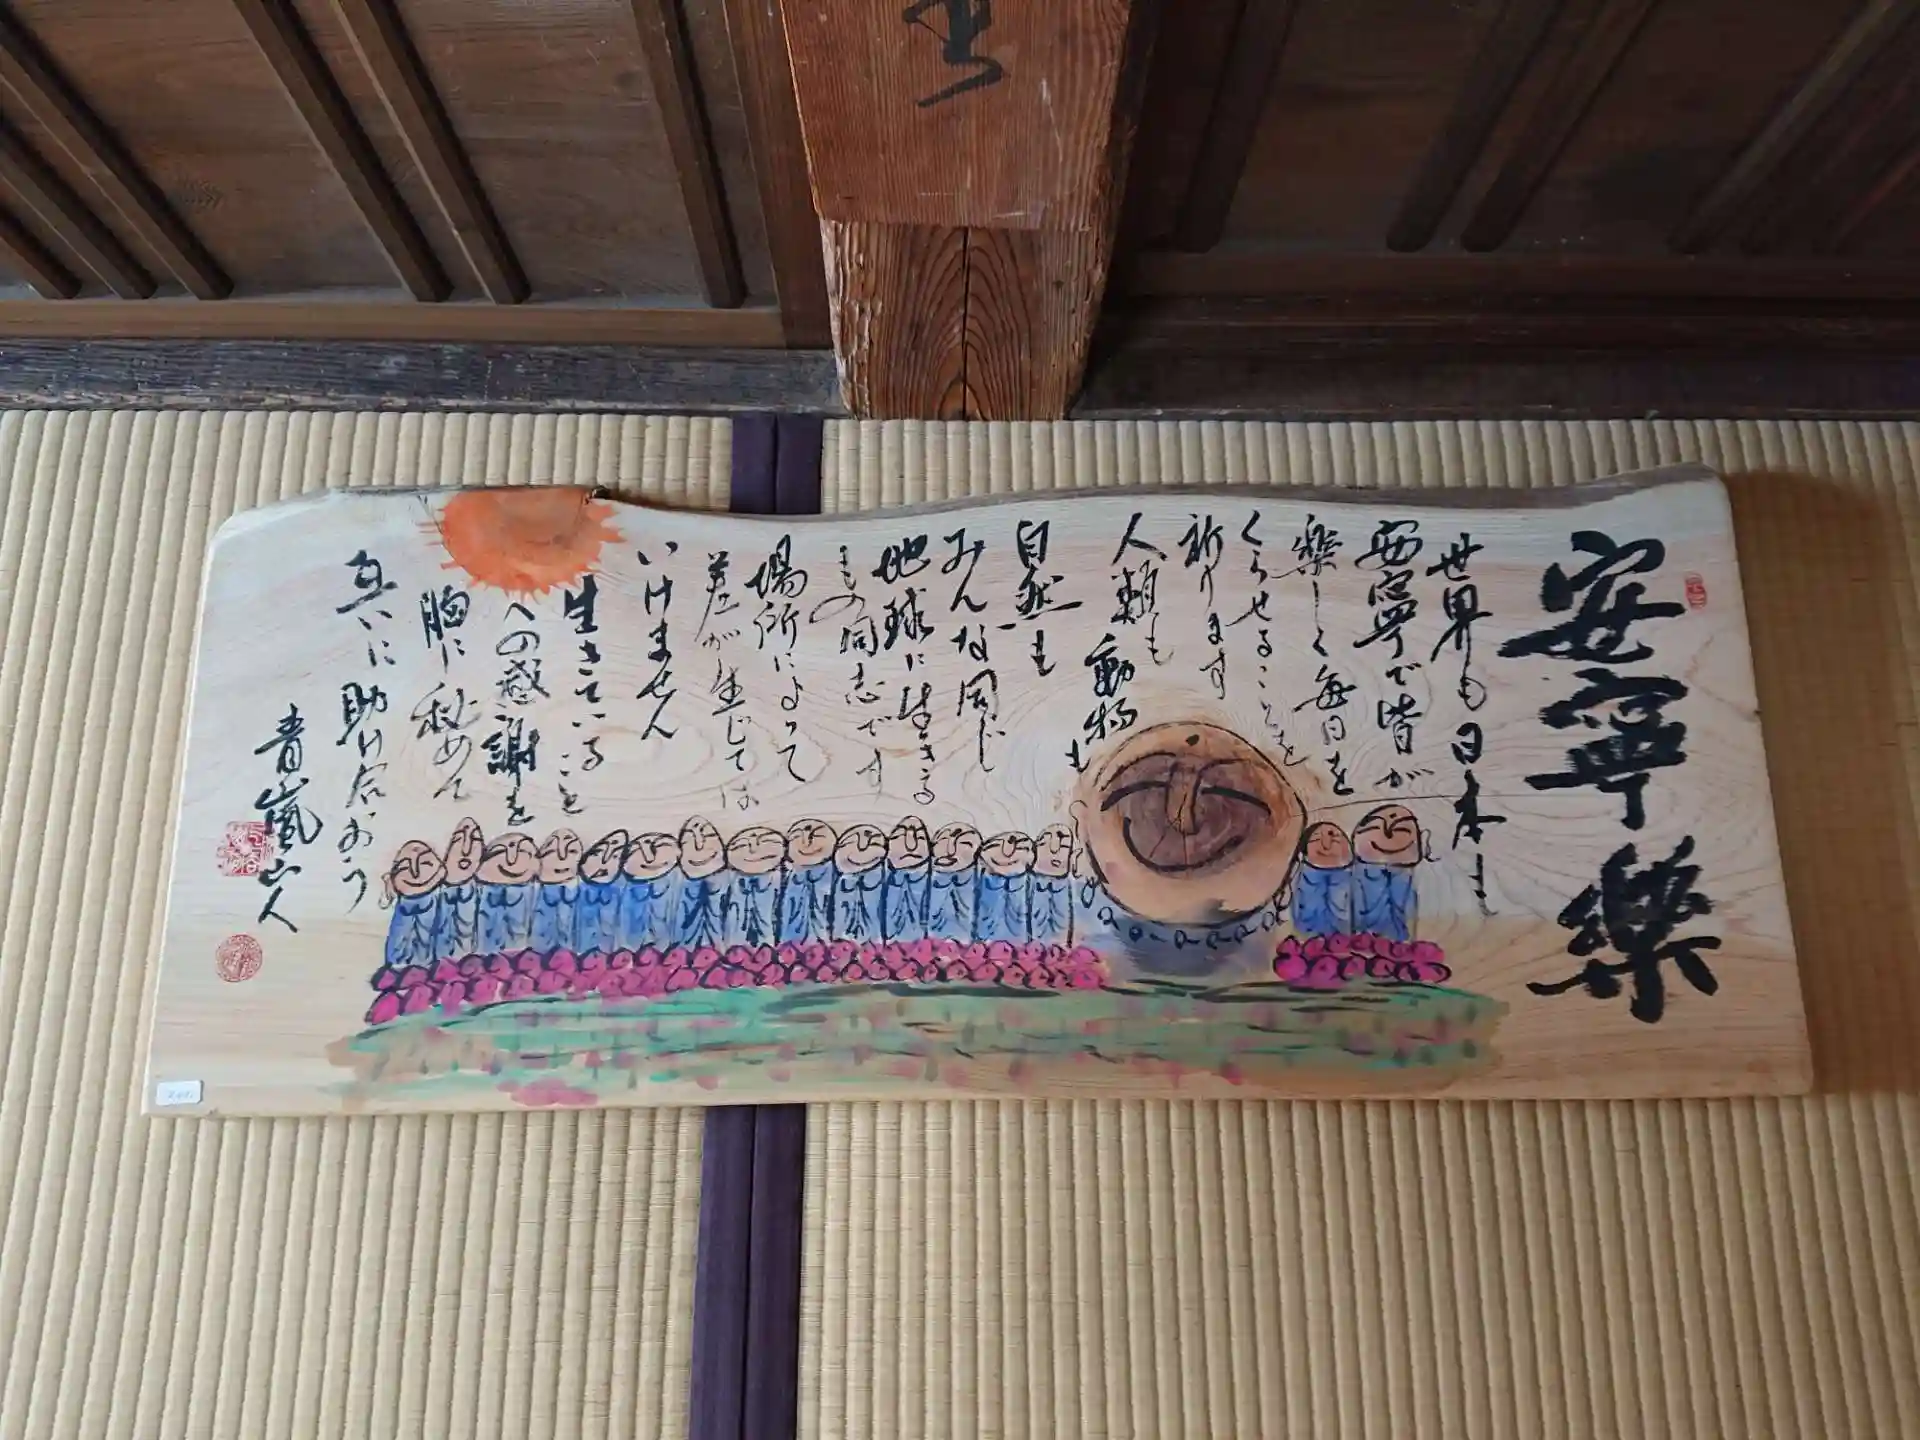 安寧樂
世界も日本も
安寧で皆が
楽しく毎日を
くらせることを
祈ります
人類も動物も
自然も
みんな同じ
地球に生きる
もの同志です
場所によって
差が生じては
いけません
生きていること
への感謝を
胸に秘めて
互いに助け合おう
青嵐山人